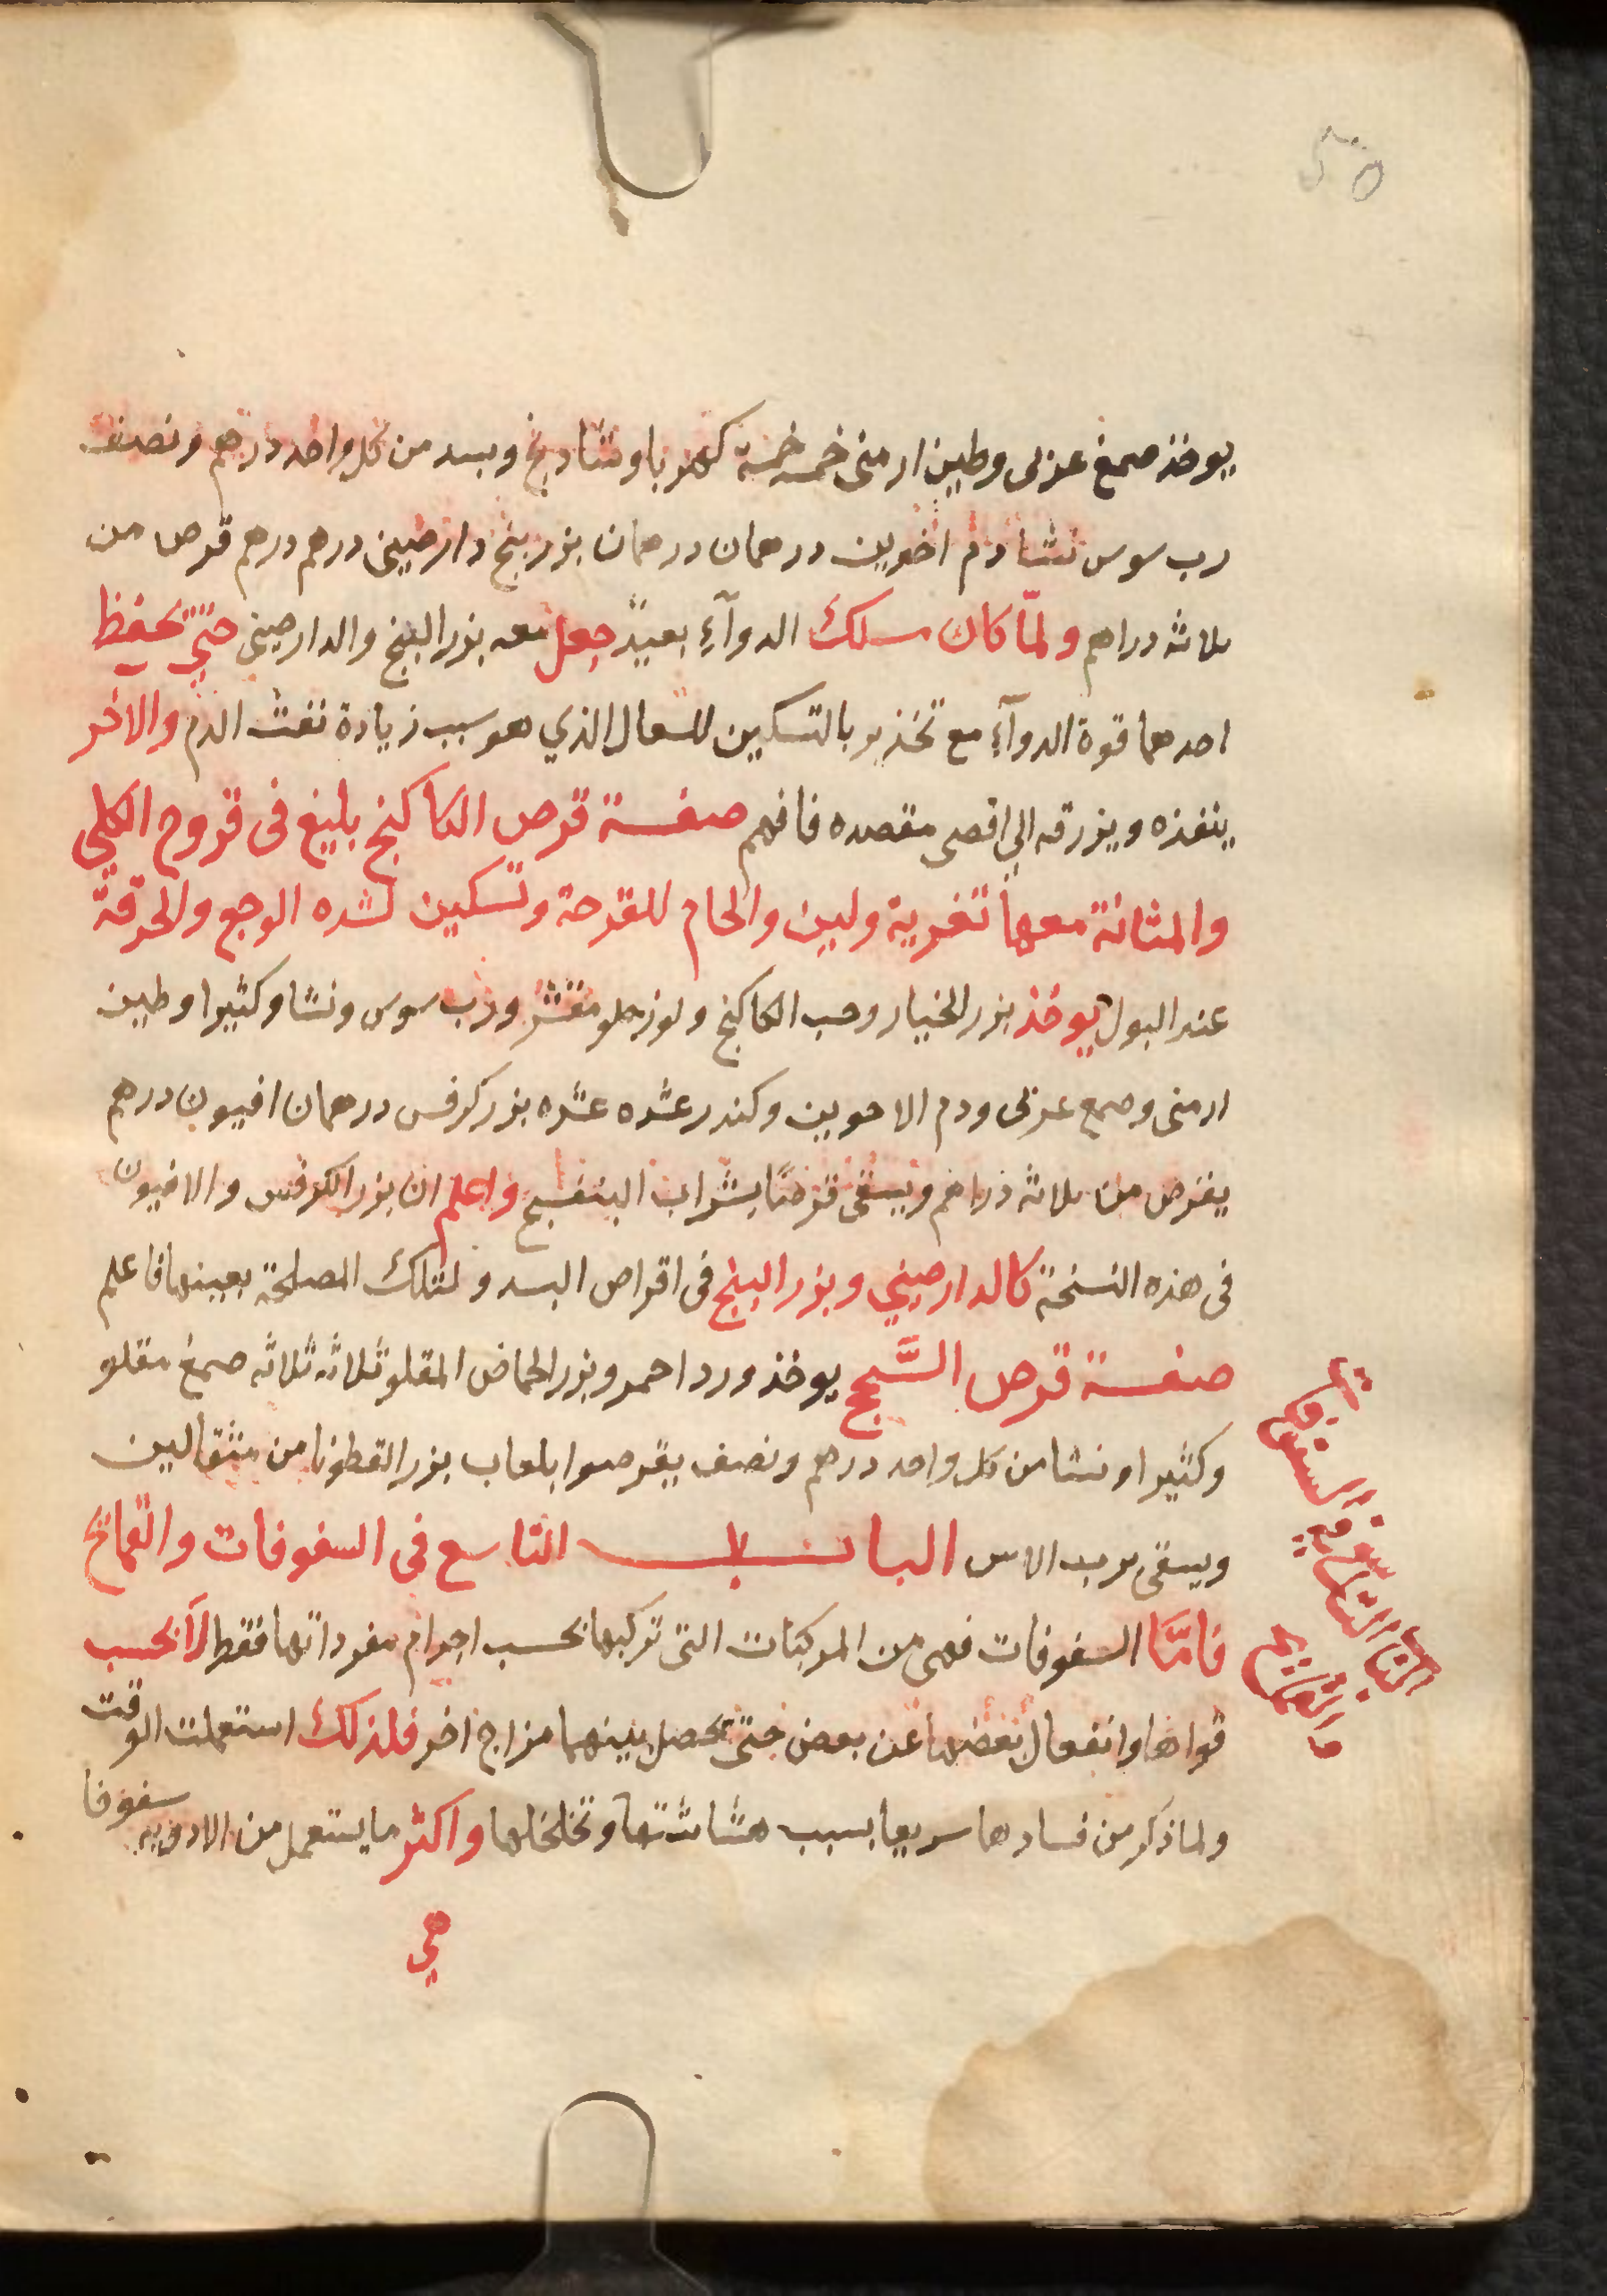 يوخذ صمغ عربى وطين ارمنى خمسه خمسة كهربا وشادنج وبسد من كل واحد درهم ونصف
رب سوس نشا دم اخوين درهمان درهمان بزر بنج دارصينى درهم درهم قرص من
ثلاثه دراهم ولمّا كان مسلك الدوآءِ بعيدً جعل معه بزر البنج والدارصينى حتى تحفظ
احدهما قوة الدوآءِ مع تخذير بالتسكين للسعال الذي هو سبب زيادة نفث الدم والاخر
ينفذه ويزرقه الي اقصى مقصده فافهم صفة قرص الكاكنج بليغ فى قروح الكلي
والمثانة معها تغرية ولين والحام للقرحة وتسكين لشده الوجع والحرقة
عند البول يوخذ بزر الخيار وحب الكاكنج ولوز حلو مقشر ورب سوس ونشا وكثيرا وطين
ارمنى وصمغ عربى ودم الاخوين وكندر عشره عشره بزر كرفس درهمان افيون درهم
يقرص من ثلاثه دراهم ويسقى قرصًا بشراب البنفسج واعلم ان بزر الكرفس والافيون
فى هذه النسخة كالدارصيني وبزر البنج فى اقراص البسد ولتلك المصلحة بعينها فاعلم
صفة قرص السَّحج يوخذ ورد احمر وبزر الحماض المقلو ثلاثه ثلاثه صمغ مقلو
وكثيرا ونشا من كل واحد درهم ونصف يقرصوا بلعاب بزر القطونا من مثقالين
ويسقى برب الاس الباب التاسع فى السفوفات والقمايح
فامَّا السفوفات فهى من المركبات التى تركبها بحسب اجرام مفرداتها فقط لا بحسب
قواها وانفعال بعضها عن بعض حتى تحصل بينهما مزاج اخر فلذلك استعملت الوقت
ولما ذكر من فسادها سريعا بسبب هشاشتها وتخلخلها واكثر ما يستعمل من الادويه سفوفا
هي
الباب التاسع في السفوفات
والقمايح